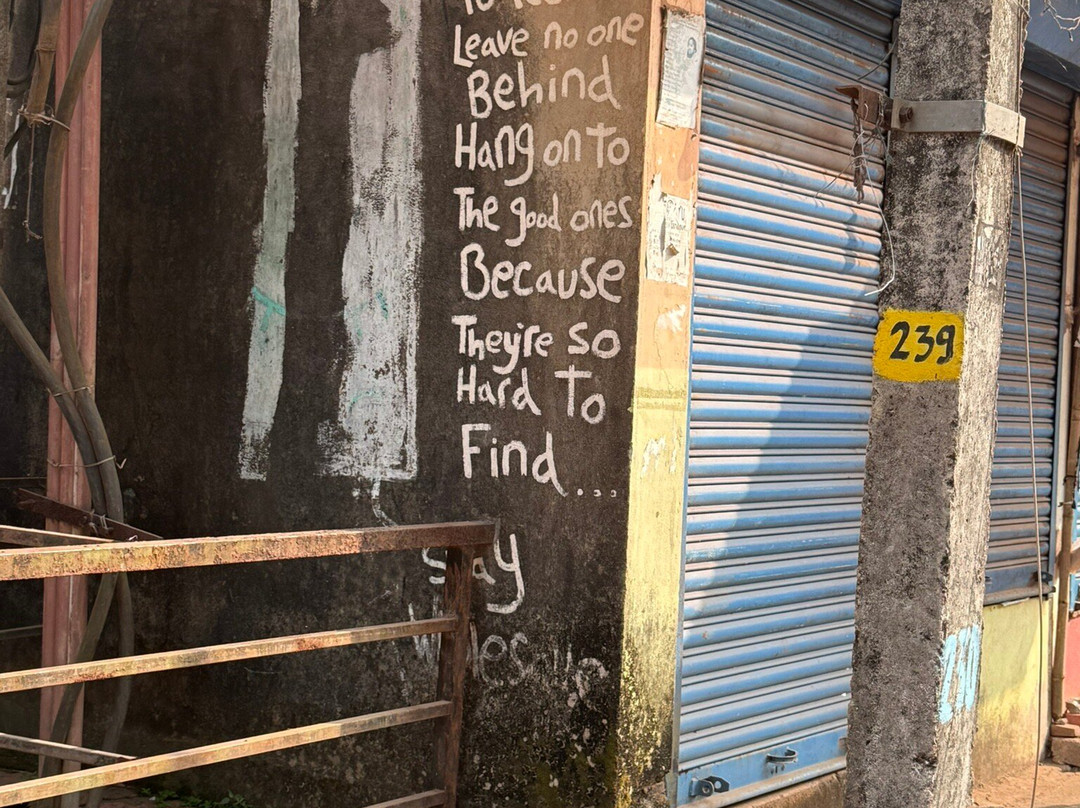 Leave no one
Behind
Hang on To
The good ones
Because
They're so
Hard To
Find....
say
239